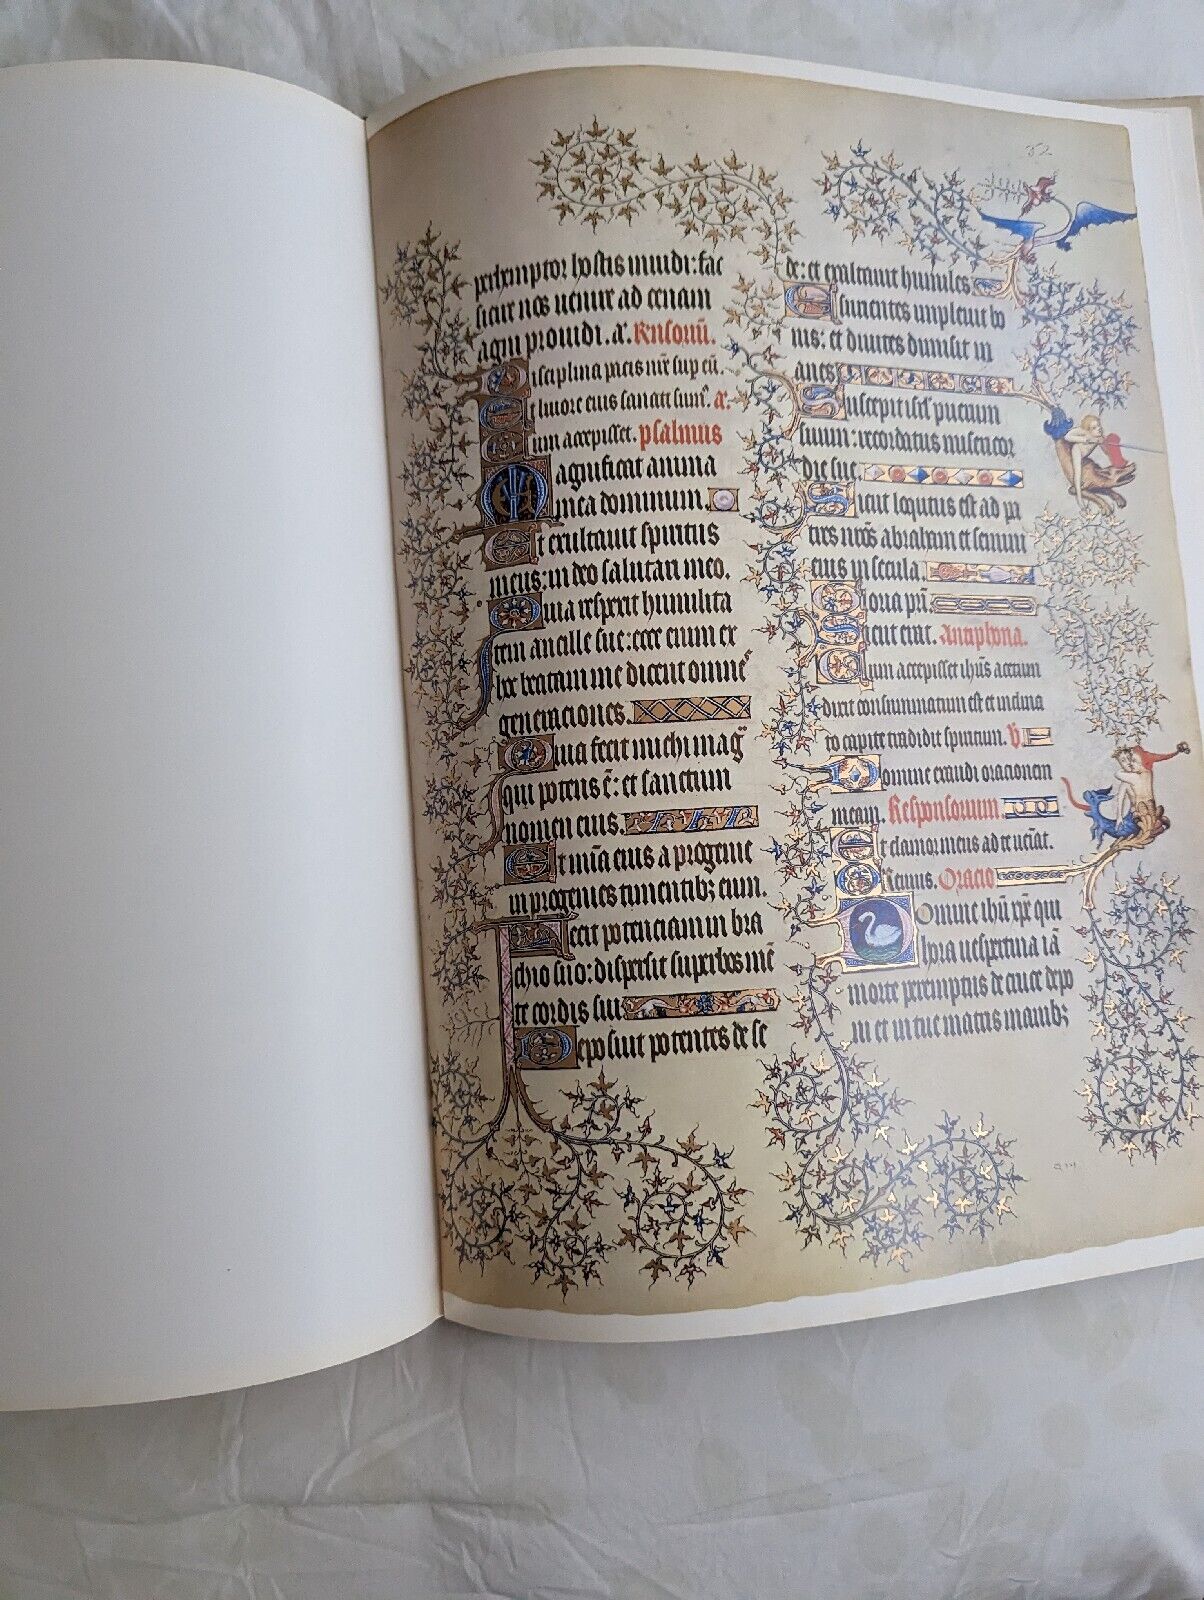 52
perhemptor hostis mundi: fac
sicut nos uenire ad cenam
agni prouidi. a.
Disciplina pacis nr̄e sup eū.
Et liuore eius sanati sum᷒. a.
Cum accepisset. psalmus
Magnificat anima
mea dominum.
Et exultauit spiritus
meus: in deo salutari meo.
Quia respexit humilita
tem ancille sue: ecce enim ex
hoc beatam me dicent omne᷒
generaciones.
Quia fecit michi mag᷒
qui potens ē: et sanctum
nomen eius.
Et mīa eius a progenie
in progenies timentibꝫ eum.
Fecit potenciam in bra
chio suo: dispersit superbos mē
te cordis sui
Deposuit potentes de se
de: et exaltauit humiles
Esurientes impleuit bo
nis: et diuites dimisit in
anes
Suscepit isrl̄ puerum
suum: recordatus misericor
die sue.
Sicut locutus est ad pa
tres nr̄os abraham et semini
eius in secula.
Gloria pr̄i.
Sicut erat. Antiphona.
Cum accepisset ihūs acetum
dixit consummatum est et inclina
to capite tradidit spiritum. V̄
Domine exaudi oracionem
meam. Responsorium
Et clamor meus ad te ueniat.
Oremus. Oracio
Domine ihū xp̄e qui
hora uespertina iā
morte peremptus de cruce depo
ni et in tue matris manibꝫ